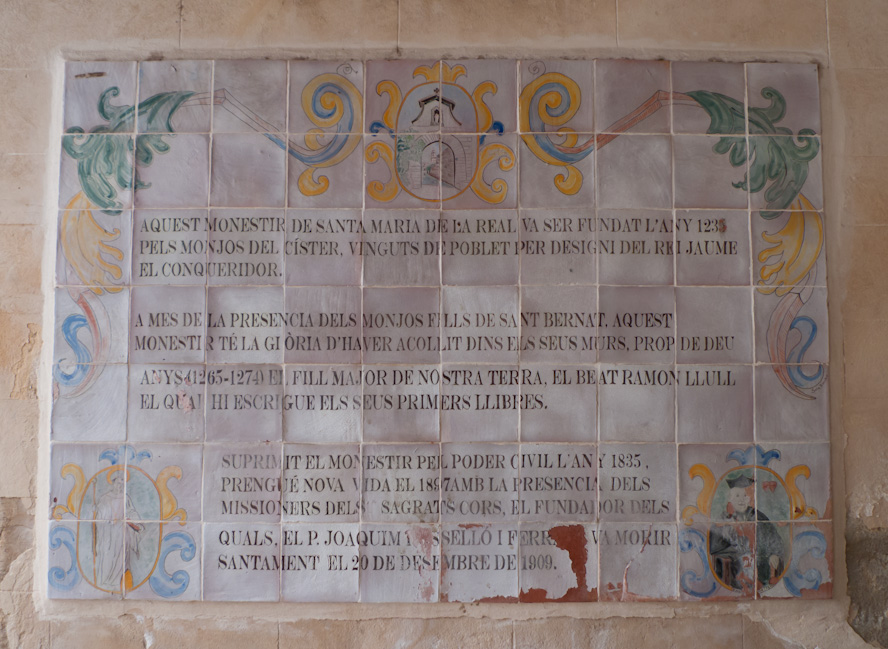 AQUEST MONESTIR DE SANTA MARIA DE LA REAL VA SER FUNDAT L'ANY 1235
PELS MONJOS DEL CÍSTER, VINGUTS DE POBLET PER DESIGNI DEL REI JAUME
EL CONQUERIDOR.
A MES DE LA PRESENCIA DELS MONJOS FILLS DE SANT BERNAT. AQUEST
MONESTIR TÉ LA GLÒRIA D'HAVER ACOLLIT DINS ELS SEUS MURS, PROP DE DEU
ANYS (1265-1274) EL FILL MAJOR DE NOSTRA TERRA, EL BEAT RAMON LLULL
EL QUAL HI ESCRIGUE ELS SEUS PRIMERS LLIBRES.
SUPRIMIT EL MONESTIR PEL PODER CIVIL L'ANY 1835,
PRENGUÉ NOVA VIDA EL 1897 AMB LA PRESENCIA DELS
MISSIONERS DELS SAGRATS CORS, EL FUNDADOR DELS
QUALS, EL P. JOAQUIM I VA MORIR
SANTAMENT EL 20 DE DESEMBRE DE 1909.